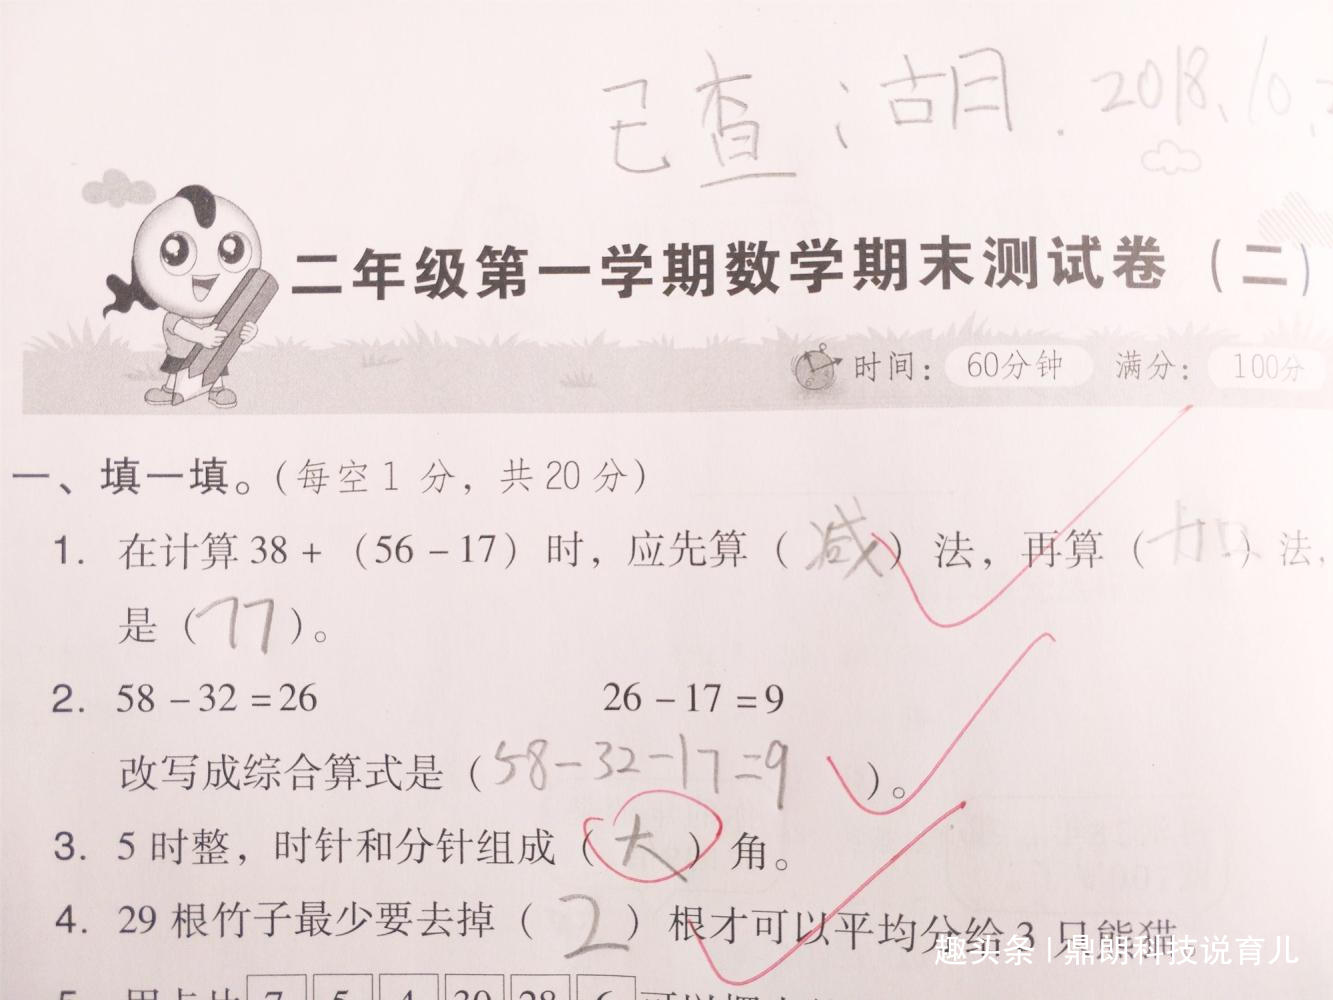 已查；胡月.2018.10.
二年级第一学期数学期末测试卷（二）
时间：60分钟 满分：100分
一、填一填。（每空1分，共20分）
1. 在计算38+（56-17）时，应先算（减）法，再算（加）法，
是（77）。
2. 58-32=26 26-17=9
改写成综合算式是（58-32-17=9）。
3. 5时整，时针和分针组成（大）角。
4. 29根竹子最少要去掉（2）根才可以平均分给3只熊猫。
5. 用卡片 7 5 4 30 28 6
趣头条 | 鼎朗科技说育儿